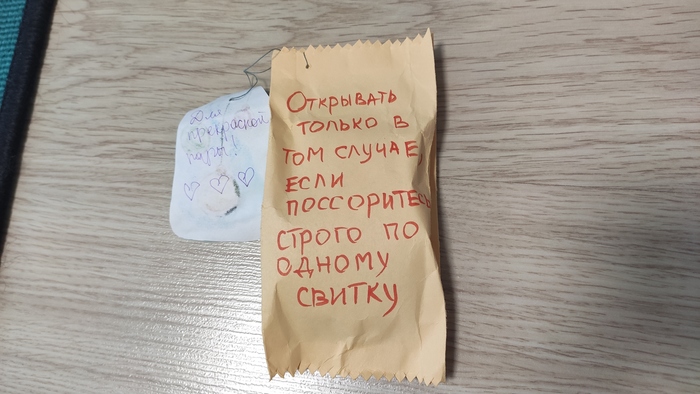 Для
прекрасной
пары!
Открывать
только в
том случае,
если
поссоритесь
строго по
одному
свитку